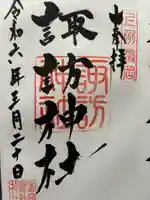 奉拝
諏訪神社
令和六年三月二十日
諏訪神社